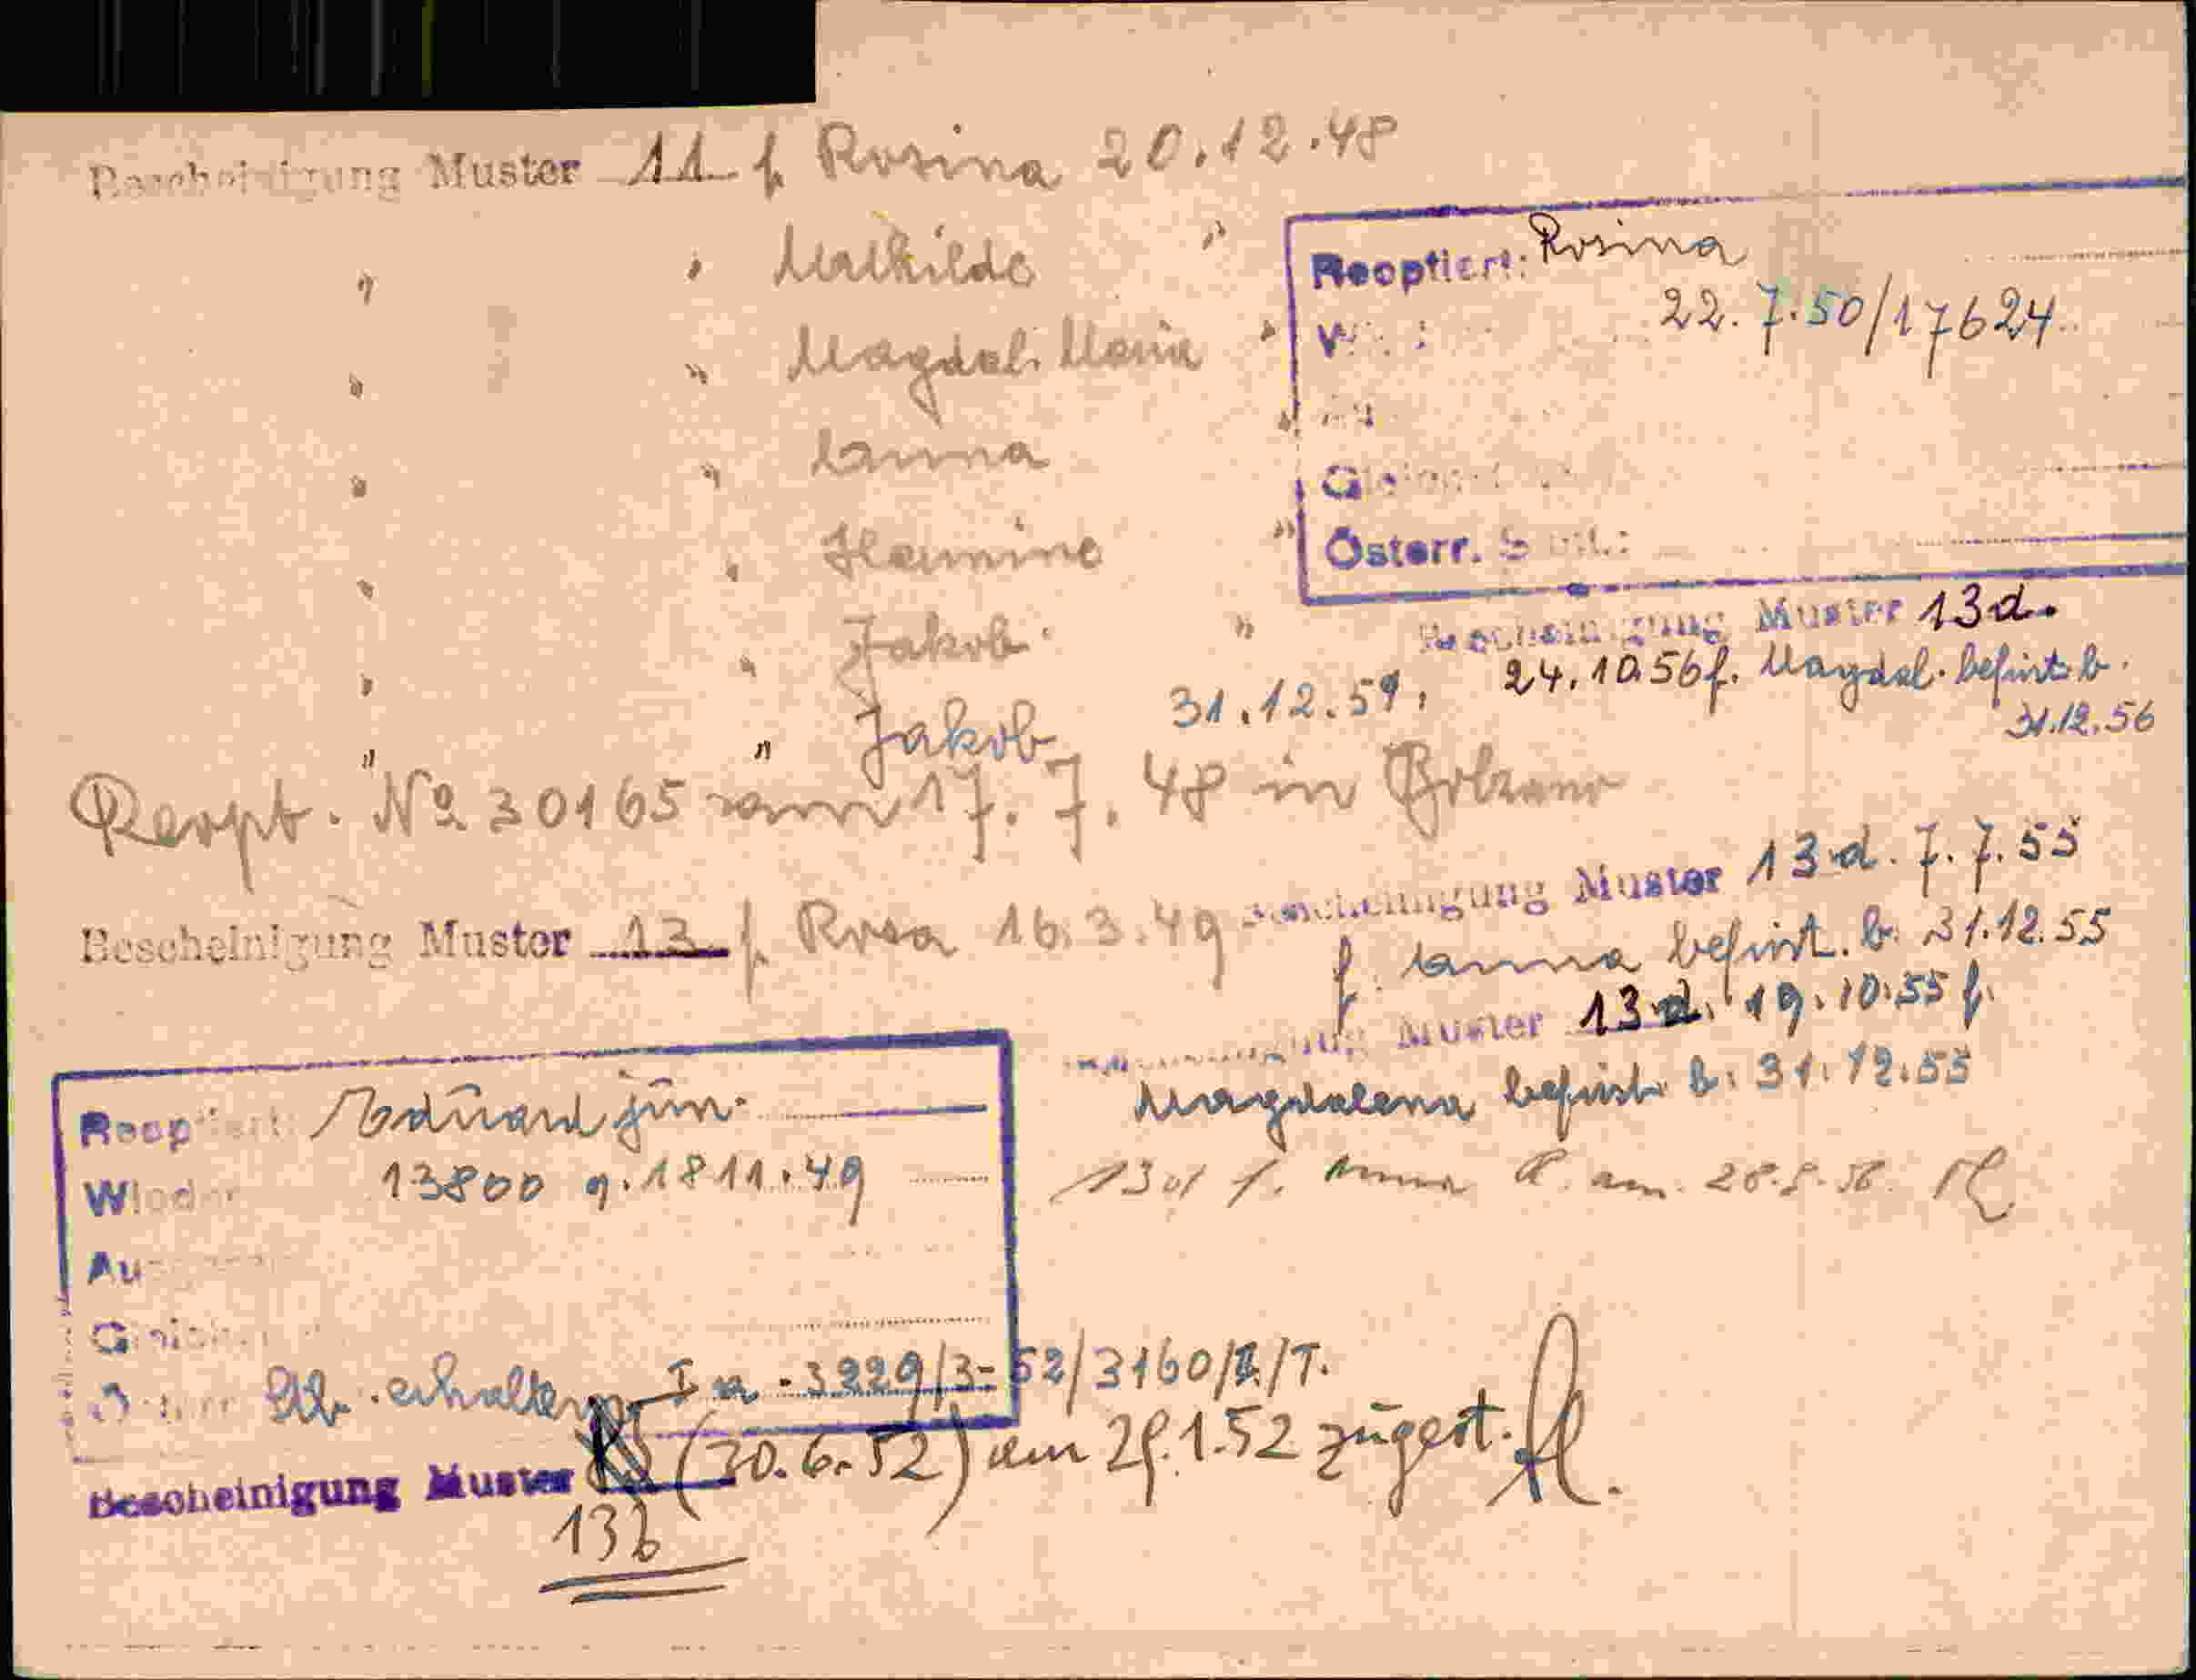 Bescheinigung Muster 11 f. Rosina 20.12.48
" " Mathilde "
" " Magdal. Maria "
" " Anna "
" " Hermine "
" " Jakob "
" " Jakob 31.12.59,
Reopt. No 30165 vom 17. 7. 48 in Bolzano
Bescheinigung Muster 13 f. Rosa 16.3.49
Reoptiert: Rosina
22. 7. 50/17624
Österr.
Bescheinigung Muster 13d.
24.10.56 f. Magdal. befrist. b.
31.12.56
Bescheinigung Muster 13 d. 7. 7. 55
f. Anna befrist. b. 31.12.55
Muster 13 d. 19.10.55 f.
Magdalena befrist. b. 31.12.55
13d f. Anna R. am
Reoptiert: Eduard jun.
Wieder 13800 18 11.49
erhalten I a - 3229/3-52/3160/I/T.
Bescheinigung Muster (30.6.52) am 1.52 zugest.
13b